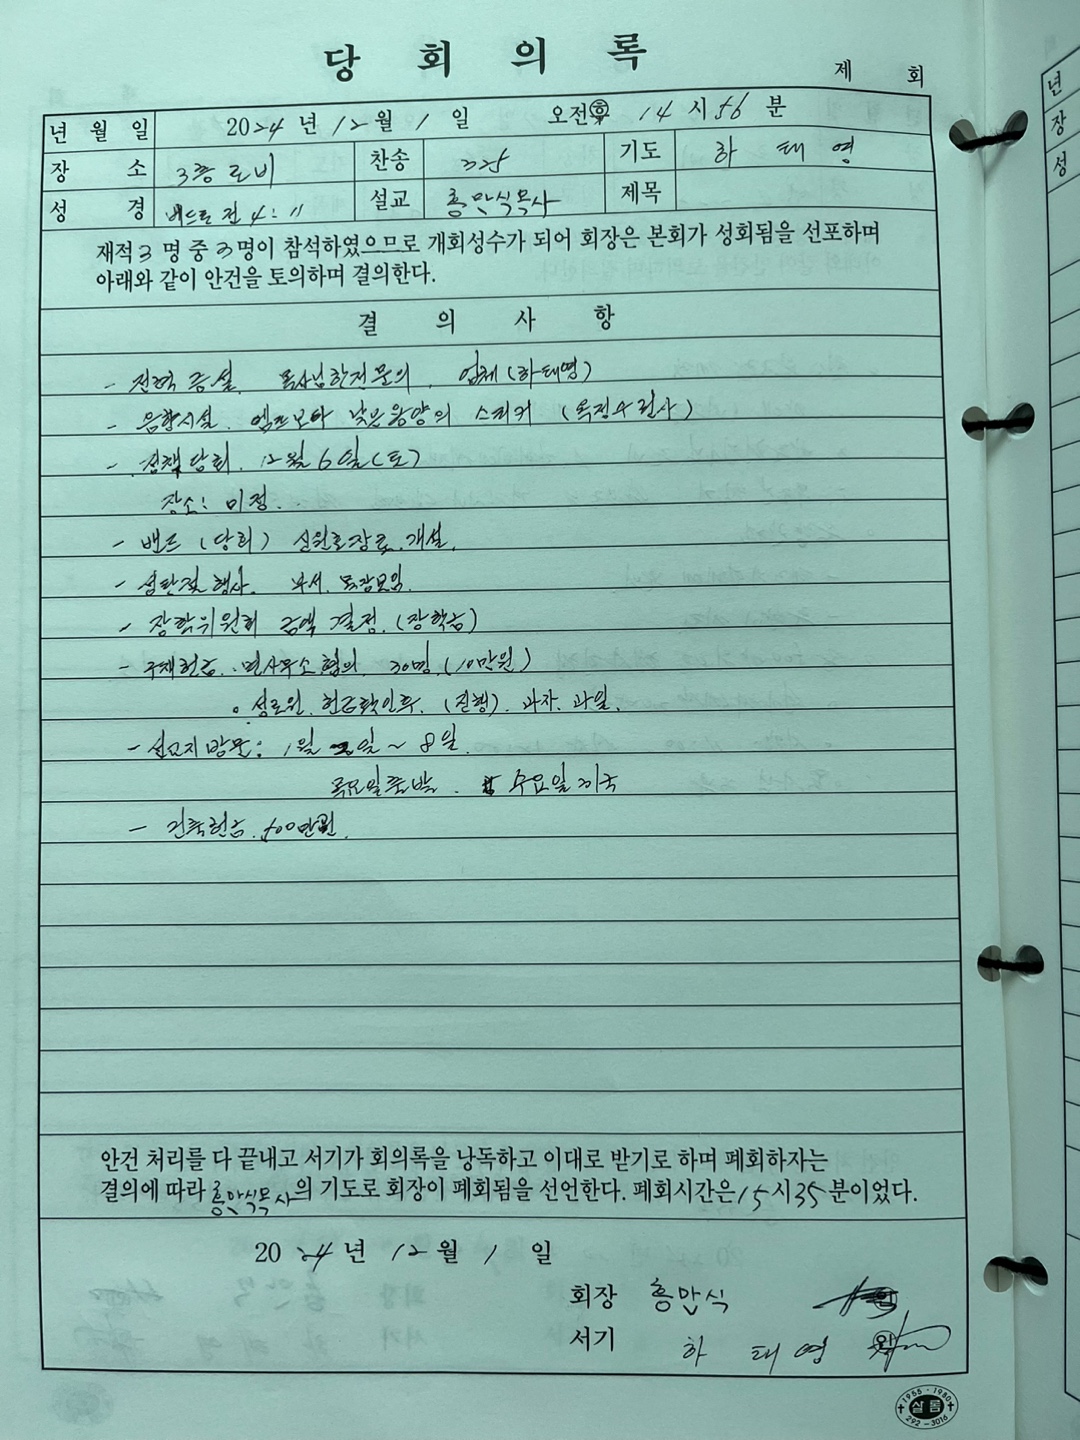 당 회 의 록
제 회
년 월 일 2024 년 12 월 1 일 오전 후 14 시 56 분
장 소 3층 로비 찬송 325 기도 하 태 영
성 경 베드로전 4:11 설교 홍만식목사 제목
재적 3 명 중 3 명이 참석하였으므로 개회성수가 되어 회장은 본회가 성회됨을 선포하며
아래와 같이 안건을 토의하며 결의한다.
결 의 사 항
- 전력 증설. 목사님 한전문의. 업체(하태영)
- 음향시설. 엘프보다 낮은음향의 스피커 (목정수권사)
- 정책당회. 12월 6일(토)
장소: 미정..
- 밴드 (당회) 신원로장로. 개설.
- 성탄절행사. 부서.
- 장학위원회 금액 결정. (장학금)
- 구제헌금. 면사무소협의. 30명. (10만원)
성로원. (진행). 과자. 과일.
- 선교지방문: 1월 2일 ~ 8일.
목요일출발. 수요일귀국
- 건축헌금. 500만원.
안건 처리를 다 끝내고 서기가 회의록을 낭독하고 이대로 받기로 하며 폐회하자는
결의에 따라 홍만식목사의 기도로 회장이 폐회됨을 선언한다. 폐회시간은 15 시 35 분이었다.
20 24 년 12 월 1 일
회장 홍만식 인
서기 하 태 영 인
1955 · 1980
살롬
292 - 3016
년
장
성